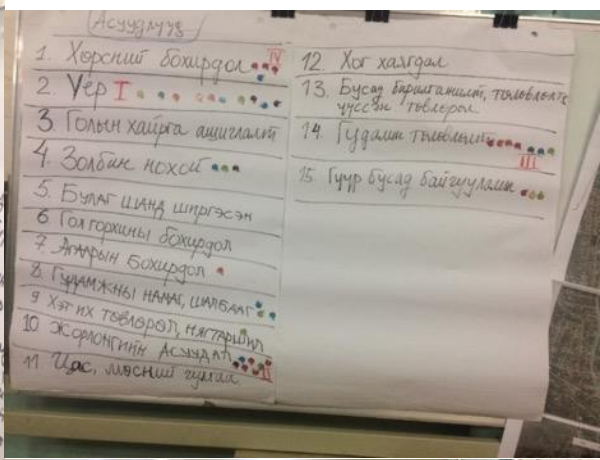 Асуудлууд
1. Хөрсний бохирдол IV
2. Үер I
3. Голын хайрга ашиглалт
4. Золбин нохой
5. Булаг шанд ширгэсэн
6 Гол горхины бохирдол
7. Агаарын бохирдол
8. Гудамжны намаг, шалбааг
9 Хэт их төвлөрөл, нягтаршил
10 Жорлонгийн асуудал II
11 Цас, мөсний гулгаа
12. Хог хаягдал
13. Бусад барилгажилт, төлөвлөлтг
үүссэн төвлөрөл
14. Гудамж төлөвлөлт III
15. Гүүр бусад байгууламж